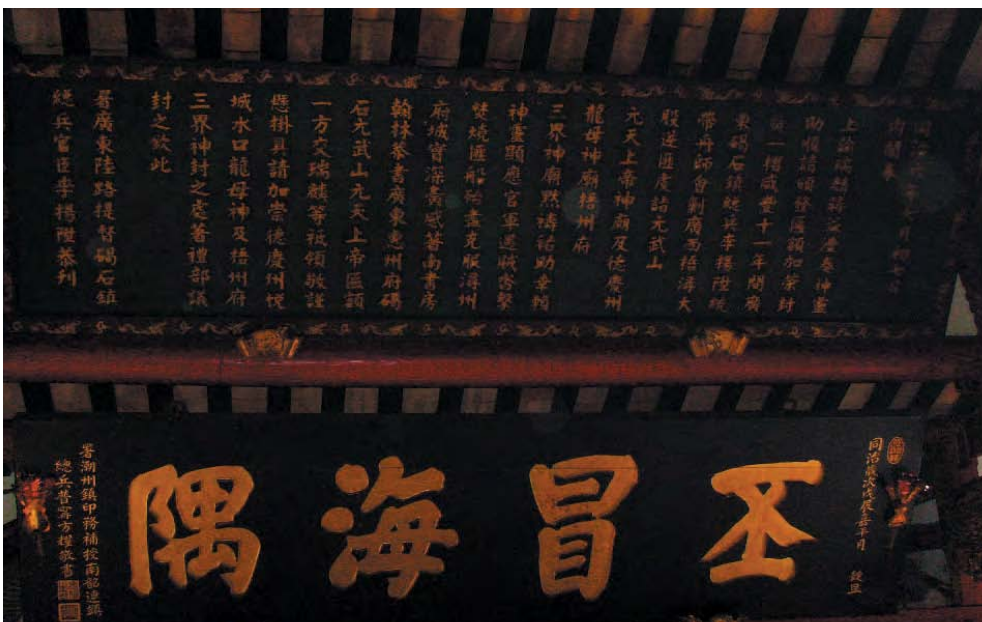 內閣奉
上諭瑞麟蔣益澧奏神靈
助順請頒發匾額加崇封
號一摺咸豐十一年間廣
東碣石鎮總兵李揚陞統
帶舟師會剿廣西梧潯大
股逆匪虔詣元武山
元天上帝神廟及德慶州
龍母神廟梧州府
三界神廟默禱祐助幸賴
神靈顯應官軍進戰奮擊
焚燒匪船殆盡克服潯州
府城實深寅感著南書房
翰林恭書廣東惠州府碣
石元武山元天上帝匾額
一方交瑞麟等祗領敬謹
懸掛其請加崇德慶州悅
城水口龍母神及梧州府
三界神封之處著禮部議
封之欽此
署廣東陸路提督碣石鎮
總兵官臣李揚陞恭刊
同治歲次戊辰嘉平月 穀旦
丕冒海隅
署潮州鎮印務補授南韶連鎮
總兵普寧方耀敬書